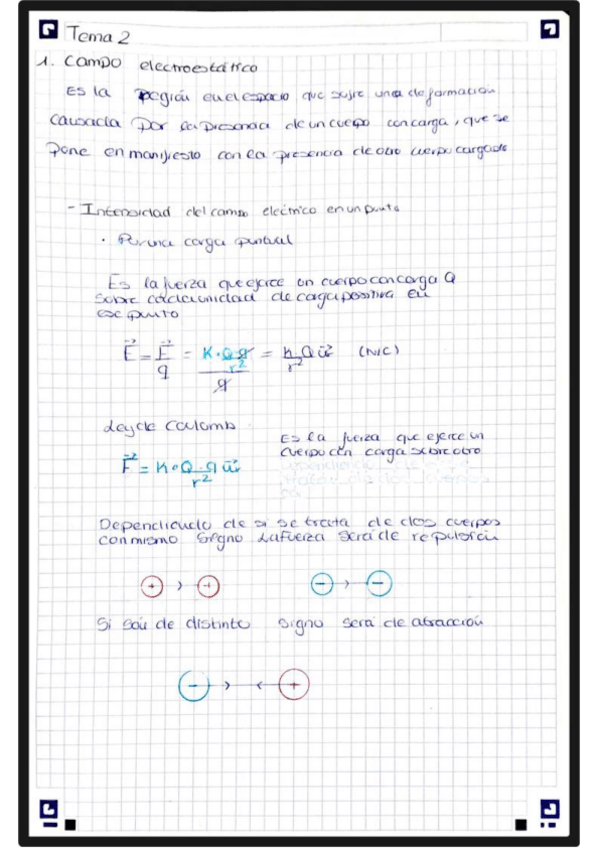 Tema 2
1. Campo electroestático
Es la región en el espacio que sufre una deformación
causada por la presencia de un cuerpo con carga, que se
pone en manifiesto con la presencia de otro cuerpo cargado
- Intensidad del campo eléctrico en un punto
· Por una carga puntual
Es la fuerza que ejerce un cuerpo con carga Q
sobre cada unidad de carga positiva en
ese punto
E⃗ = F⃗/q = (K·Q·q/r²)/q = K·Q/r² u⃗r (N/C)
Ley de Coulomb
F⃗ = K·Q·q/r² u⃗r
Es la fuerza que ejerce un
cuerpo con carga sobre otro
Dependiendo de si se trata de dos cuerpos
con mismo signo la fuerza será de repulsión
+ > < +
- > -
Si son de distinto signo será de atracción
- > < +